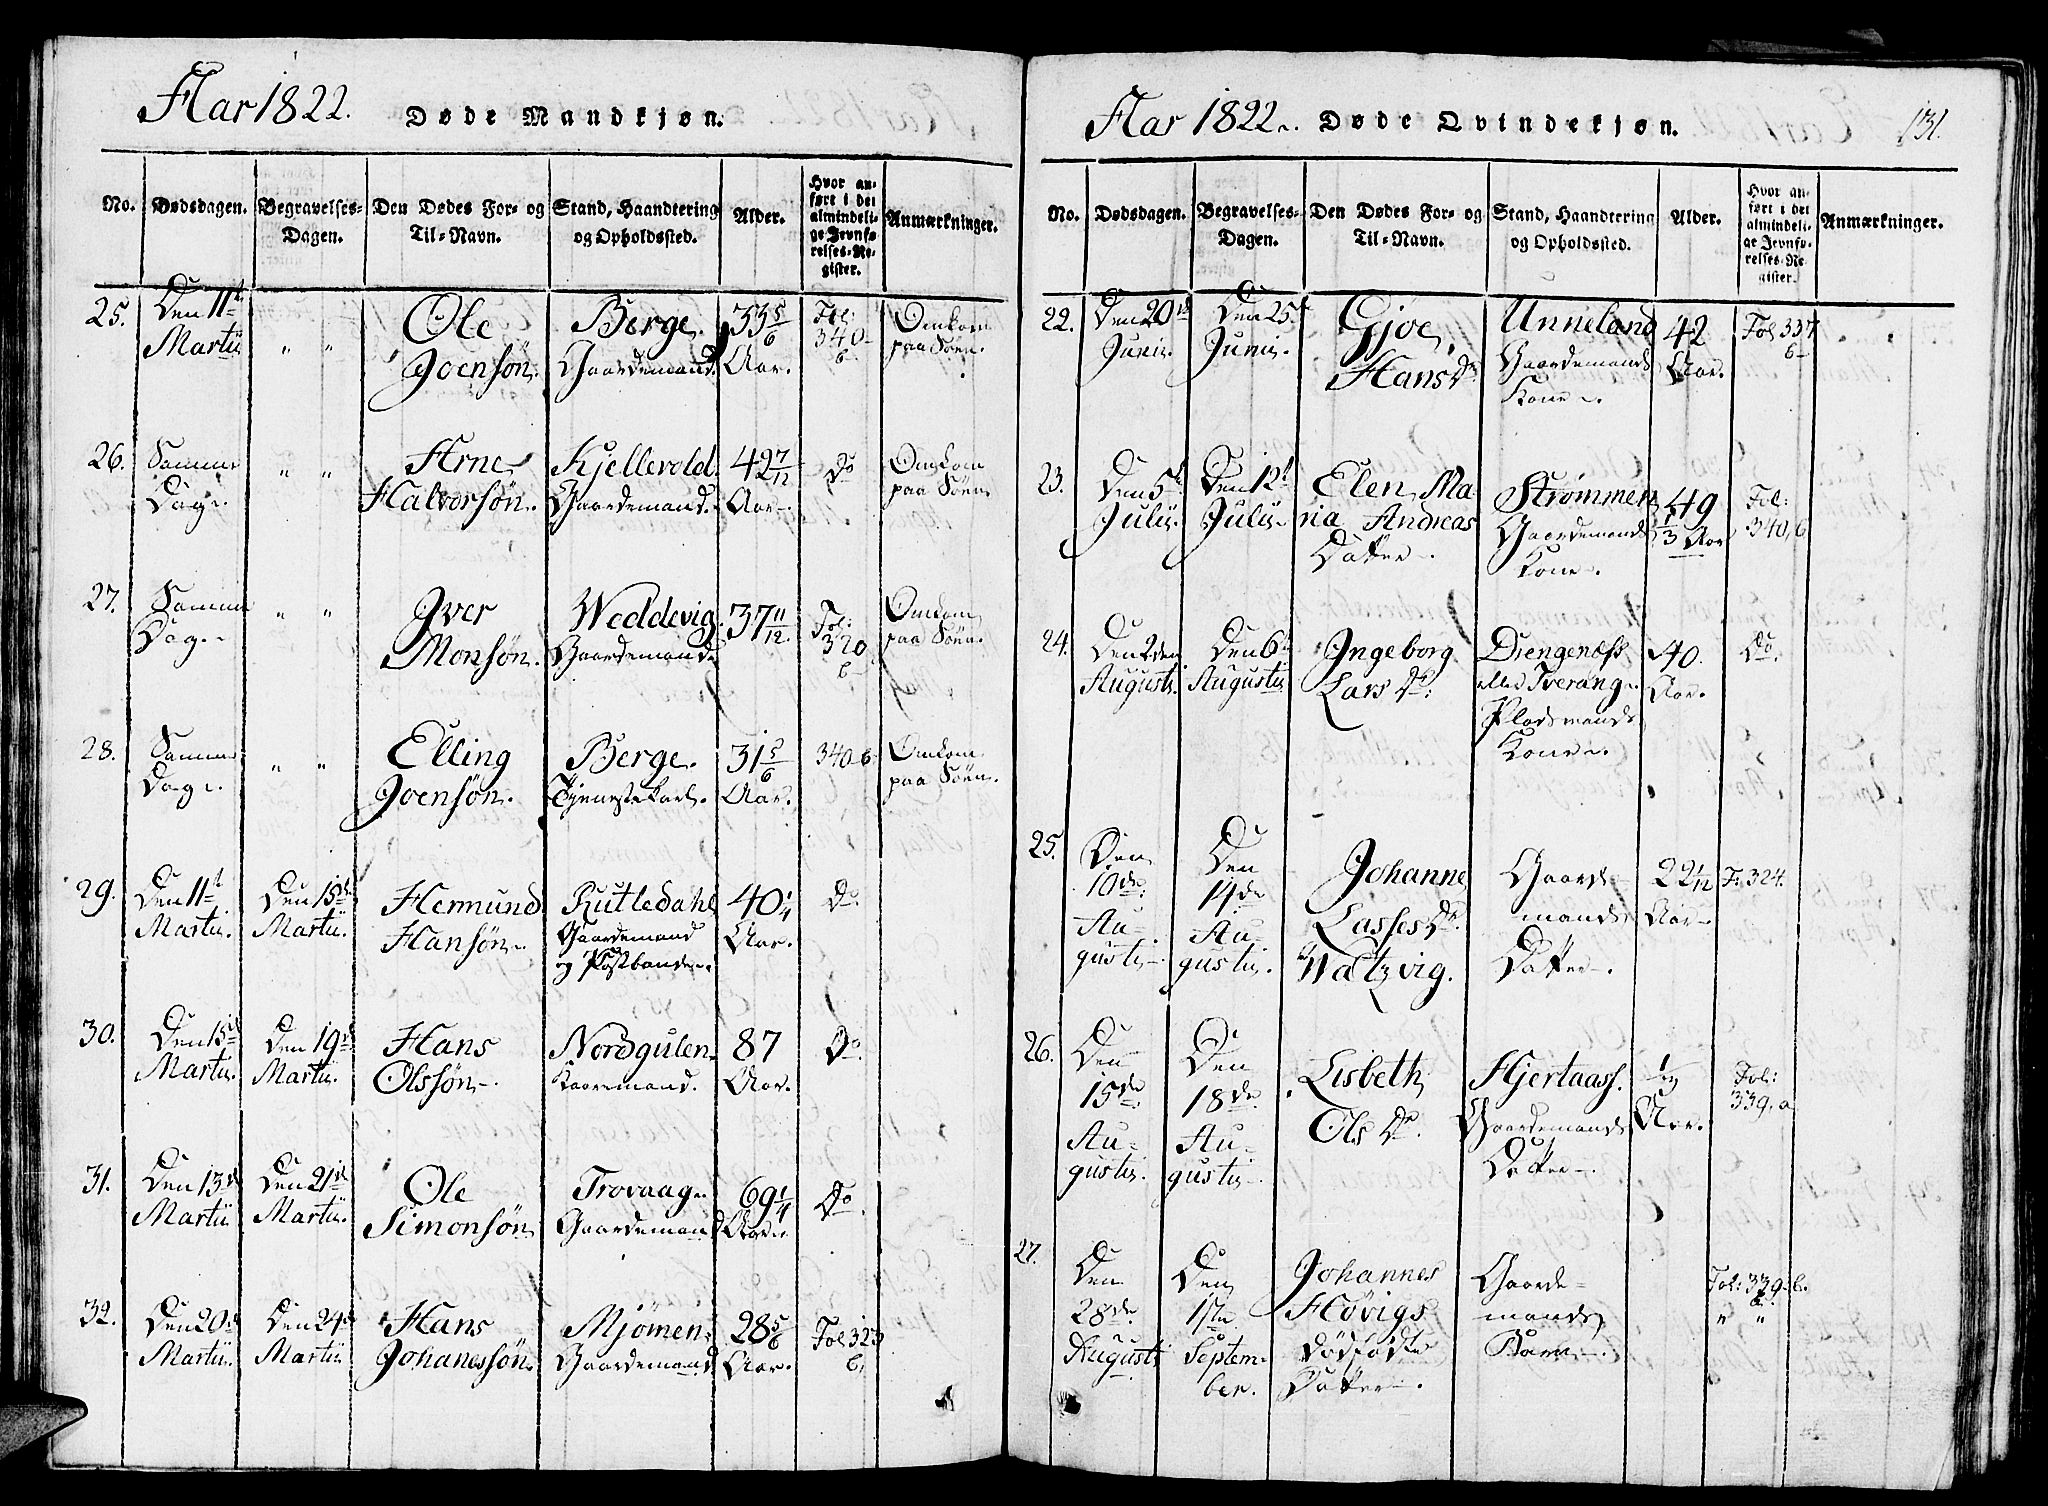 Aar 1822. Døde Mandkjøn.
No. Dødsdagen. Begravelses-Dagen. Den Dødes For- og Til-Navn. Stand, Haandtering og Opholdssted. Alder. Hvor anført i det almindelige Jevnførelses-Register. Anmærkninger.
25. Den 11te Martii " " Ole Joensøn. Berge. Gaardemand. 33 5/6 Aar. Fol: 340 b Omkom paa Søen.
26. Samme Dag. " " Arne Halvorsøn. Kjellevold. Gaardemand. 42 7/12 Aar. Do Omkom paa Søen.
27. Samme Dag. " " Iver Monsøn. Weddevig. Gaardemand 37 11/12. Fol: 320 b Omkom paa Søen.
28. Samme Dag. " " Elling Joensøn. Berge. Tjenestekarl. 31 5/6 Aar. 340 b Omkom paa Søen.
29. Den 11te Martii. Den 15de Martii. Hermund Hansøn. Rutledahl Gaardemand og Postbonde. 40 1/4 Aar. Do.
30. Den 15de Martii. Den 19de Martii. Hans Olssøn. Nordgulen. Kaaremand. 87 Aar. Do.
31. Den 13de Martii Den 21de Martii. Ole Simonsøn Trovaag. Gaardemand 69 1/4 Aar. Do.
32. Den 20de Martii. Den 24de Martii Hans Johanessøn. Mjømen. Gaardemand 28 5/6 Aar. Fol 323 b
Aar 1822. Døde Qvindekjøn. 131.
No. Dødsdagen. Begravelses-Dagen. Den Dødes For- og Til-Navn. Stand, Haandtering og Opholdssted. Alder. Hvor anført i det almindelige Jevnførelses-Register. Anmærkninger.
22. Den 20de Junii. Den 25 Junii. Gjoe Hans Dr. Unneland Gaardemands Kone. 42 Aar. Fol 337 b
23. Den 5te Julii. Den 12te Julii. Elen Maria Andreas Datter. Strømmen Gaardemands Kone. 49 1/3 Aar Fol: 340, b
24. Den 2den Augusti. Den 6te Augustii Ingeborg Lars Dr. Drengenæss eller Tverang. Pladsmands Kone. 40. Aar. Do.
25. Den 10de Augustii. Den 14de Augustii. Johanne Lasses Dr. Watzvig. Gaardemands Datter. 22 1/12 Aar F. 324.
26. Den 15de Augustii. Den 18de Augustii. Lisbeth Ols Dr. Hjertaass. Gaardemands Datter. Aar. Fol: 339, a
27. Den 28de Augusti Den 1ste September. Johannes Høvigs dødfødte Datter. Gaardemands Barn. Fol: 339. b. " "